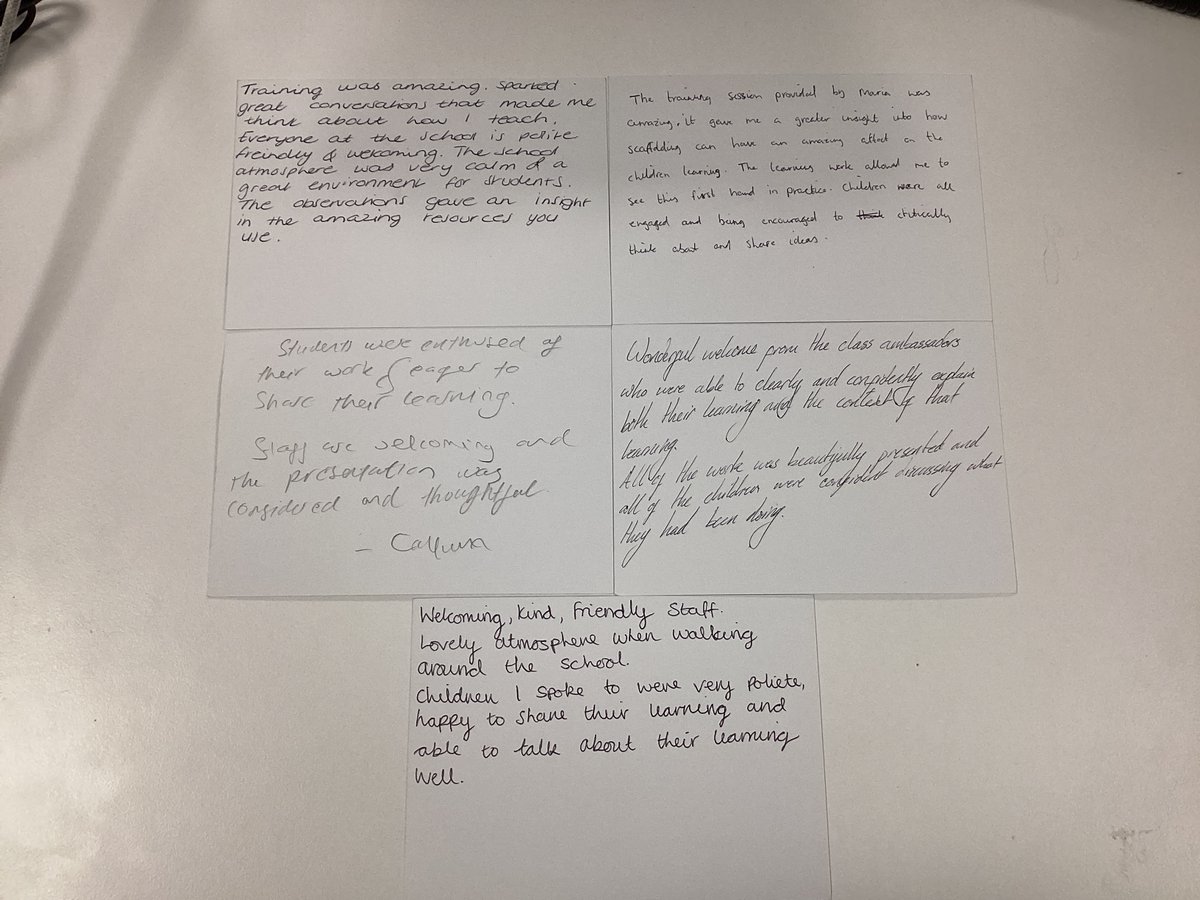 Training was amazing. Sparked
great conversations that made me
think about how I teach.
Everyone at the school is polite
freindly & welcoming. The school
atmosphere was very calm & a
great environment for students.
The observations gave an insight
in the amazing resources you
use.
The training session provided by Maria was
amazing, it gave me a greater insight into how
scaffolding can have an amazing affect on the
children learning. The learning walk allowed me to
see this first hand in practice. Children were all
engaged and being encouraged to critically
think about and share ideas.
Students were enthused of
their work & eager to
share their learning.
Staff are welcoming and
the presentation was
considered and thoughtful.
– Callum
Wonderful welcome from the class ambassadors
who were able to clearly and confidently explain
both their learning and the context of that
learning.
All of the work was beautifully presented and
all of the children were confident discussing what
they had been doing.
Welcoming, kind, friendly staff.
Lovely atmosphere when walking
around the school.
Children I spoke to were very poliete,
happy to share their learning and
able to talk about their learning
well.